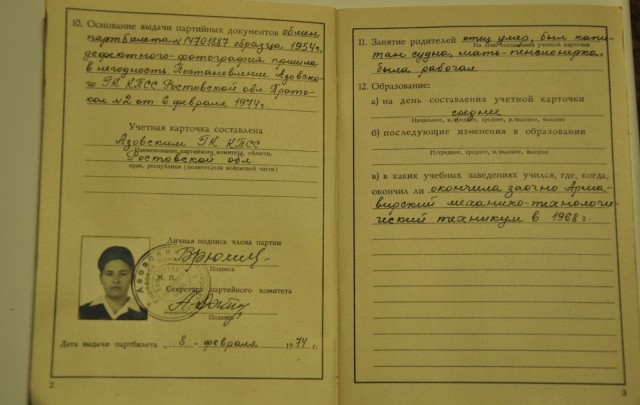 10. Основание выдачи партийных документов обмен
партбилета № 14701887 образца 1954 г.
дефектного-фотография пришла
в негодность Постановление Азовско-
го ГК КПСС Ростовской обл Прото-
кол №2 от 6 февраля 1974г.
Учетная карточка составлена
Азовским ГК КПСС
Наименование партийного комитета, области,
Ростовской обл
края, республики (политотдела войсковой части)
Личная подпись члена партии
Подпись
М. П.
Секретарь партийного комитета
Подпись
Дата выдачи партбилета 8 - февраля 1974 г.
2
11. Занятие родителей отец умер, был капи-
На день составления учетной карточки
тан судна, мать-пенсионерка
была рабочая
12. Образование:
а) на день составления учетной карточки
среднее
Начальное, н/среднее, среднее, н/высшее, высшее
б) последующие изменения в образовании
Н/среднее, среднее, н/высшее, высшее
в) в каких учебных заведениях учился, где, когда,
окончил ли окончила заочно Арма-
вирский механико-технологи-
ческий техникум в 1968 г.
3